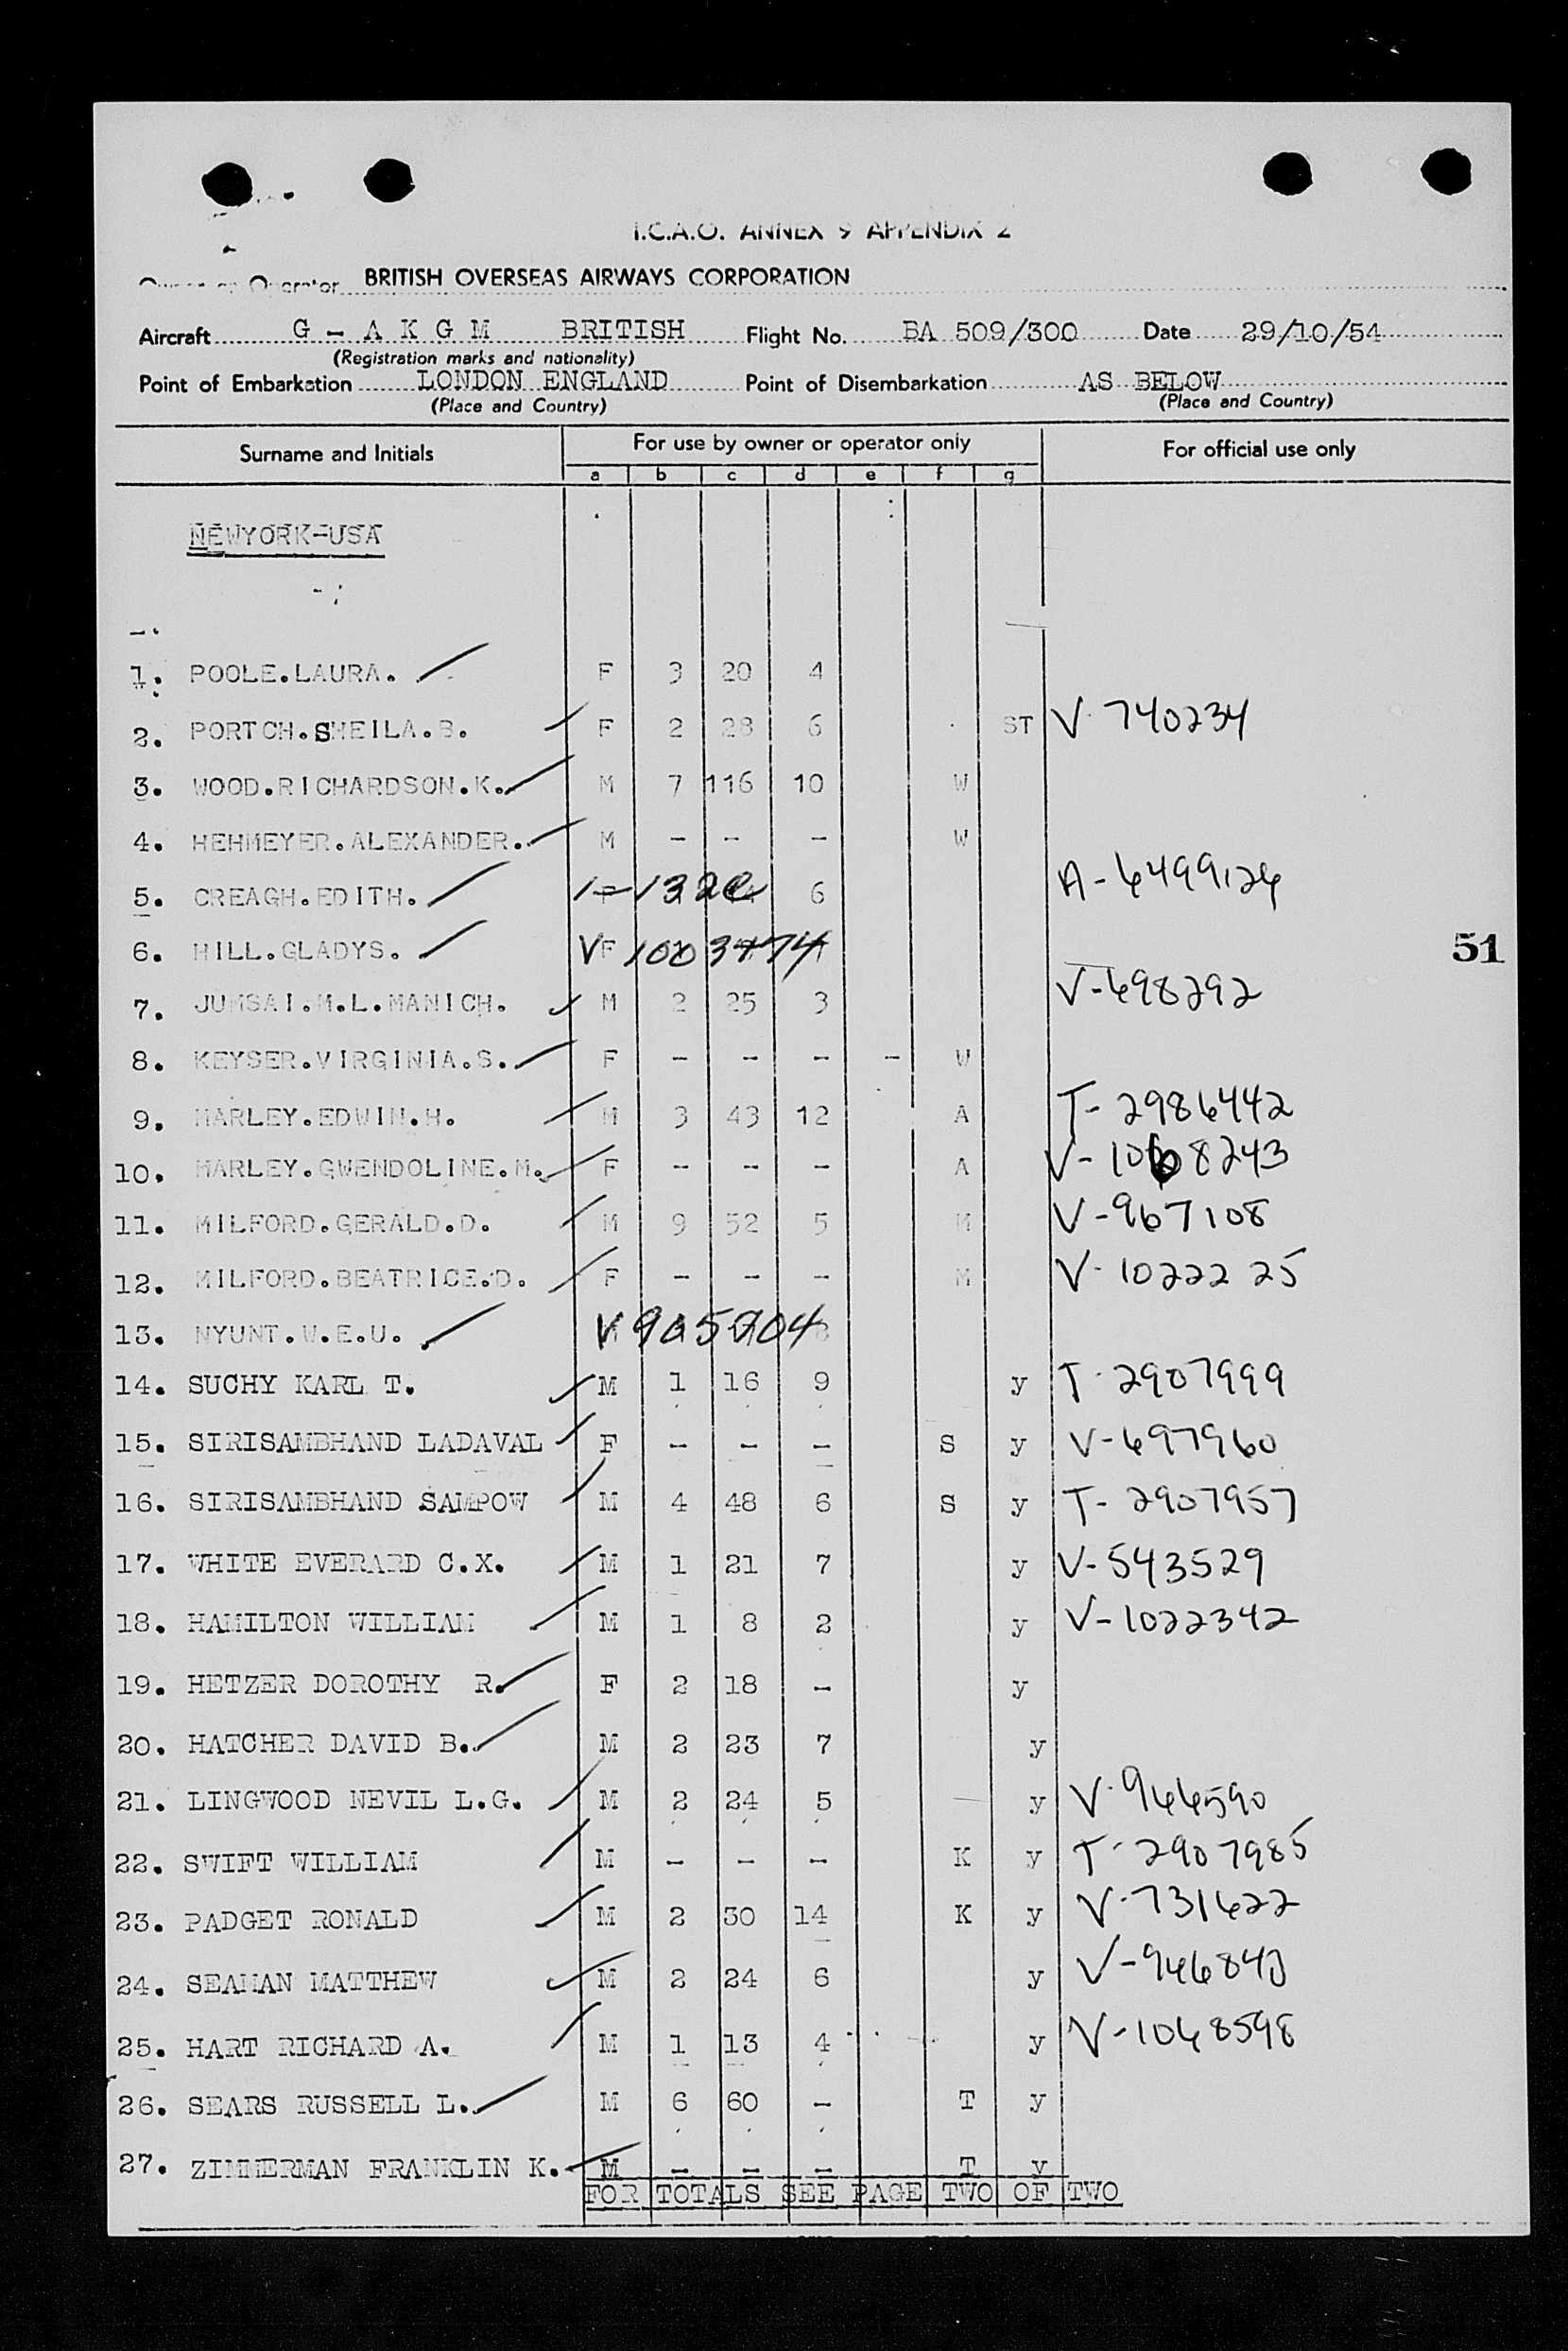 I.C.A.O. ANNEX 9 APPENDIX 2
Owner or Operator BRITISH OVERSEAS AIRWAYS CORPORATION
Aircraft G - A K G M BRITISH Flight No. BA 509/300 Date 29/10/54
(Registration marks and nationality)
Point of Embarkation LONDON ENGLAND Point of Disembarkation AS BELOW
(Place and Country) (Place and Country)
Surname and Initials For use by owner or operator only For official use only
a b c d e f g
NEWYORK-USA
1. POOLE.LAURA. F 3 20 4
2. PORTCH.SHEILA.B. F 2 28 6 ST V-740234
3. WOOD.RICHARDSON.K. M 7 116 10 W
4. HEHMEYER.ALEXANDER. M - - - W
5. CREAGH.EDITH. 6 A-6499126
6. HILL.GLADYS. V F 1003474
51
7. JUMSAI.M.L.MANICH. M 2 25 3 V-698292
8. KEYSER.VIRGINIA.S. F - - - - W
9. MARLEY.EDWIN.H. M 3 43 12 A T-2986442
10. MARLEY.GWENDOLINE.M. F - - - A V-1068243
11. MILFORD.GERALD.D. M 9 52 5 M V-967108
12. MILFORD.BEATRICE.D. F - - - M V-1022225
13. NYUNT.W.E.U. V 905704
14. SUCHY KARL T. M 1 16 9 y T-2907999
15. SIRISAMBHAND LADAVAL F - - - S y V-697960
16. SIRISAMBHAND SAMPOW M 4 48 6 S y T-2907957
17. WHITE EVERARD C.X. M 1 21 7 y V-543529
18. HAMILTON WILLIAM M 1 8 2 y V-1022342
19. HETZER DOROTHY R. F 2 18 - y
20. HATCHER DAVID B. M 2 23 7 y
21. LINGWOOD NEVIL L.G. M 2 24 5 y V-946590
22. SWIFT WILLIAM M - - - K y T-2907985
23. PADGET RONALD M 2 30 14 K y V-731622
24. SEAMAN MATTHEW M 2 24 6 y
25. HART RICHARD A. M 1 13 4 y V-1068598
26. SEARS RUSSELL L. M 6 60 - T y
27. ZIMMERMAN FRANKLIN K. M - - - T y
FOR TOTALS SEE PAGE TWO OF TWO